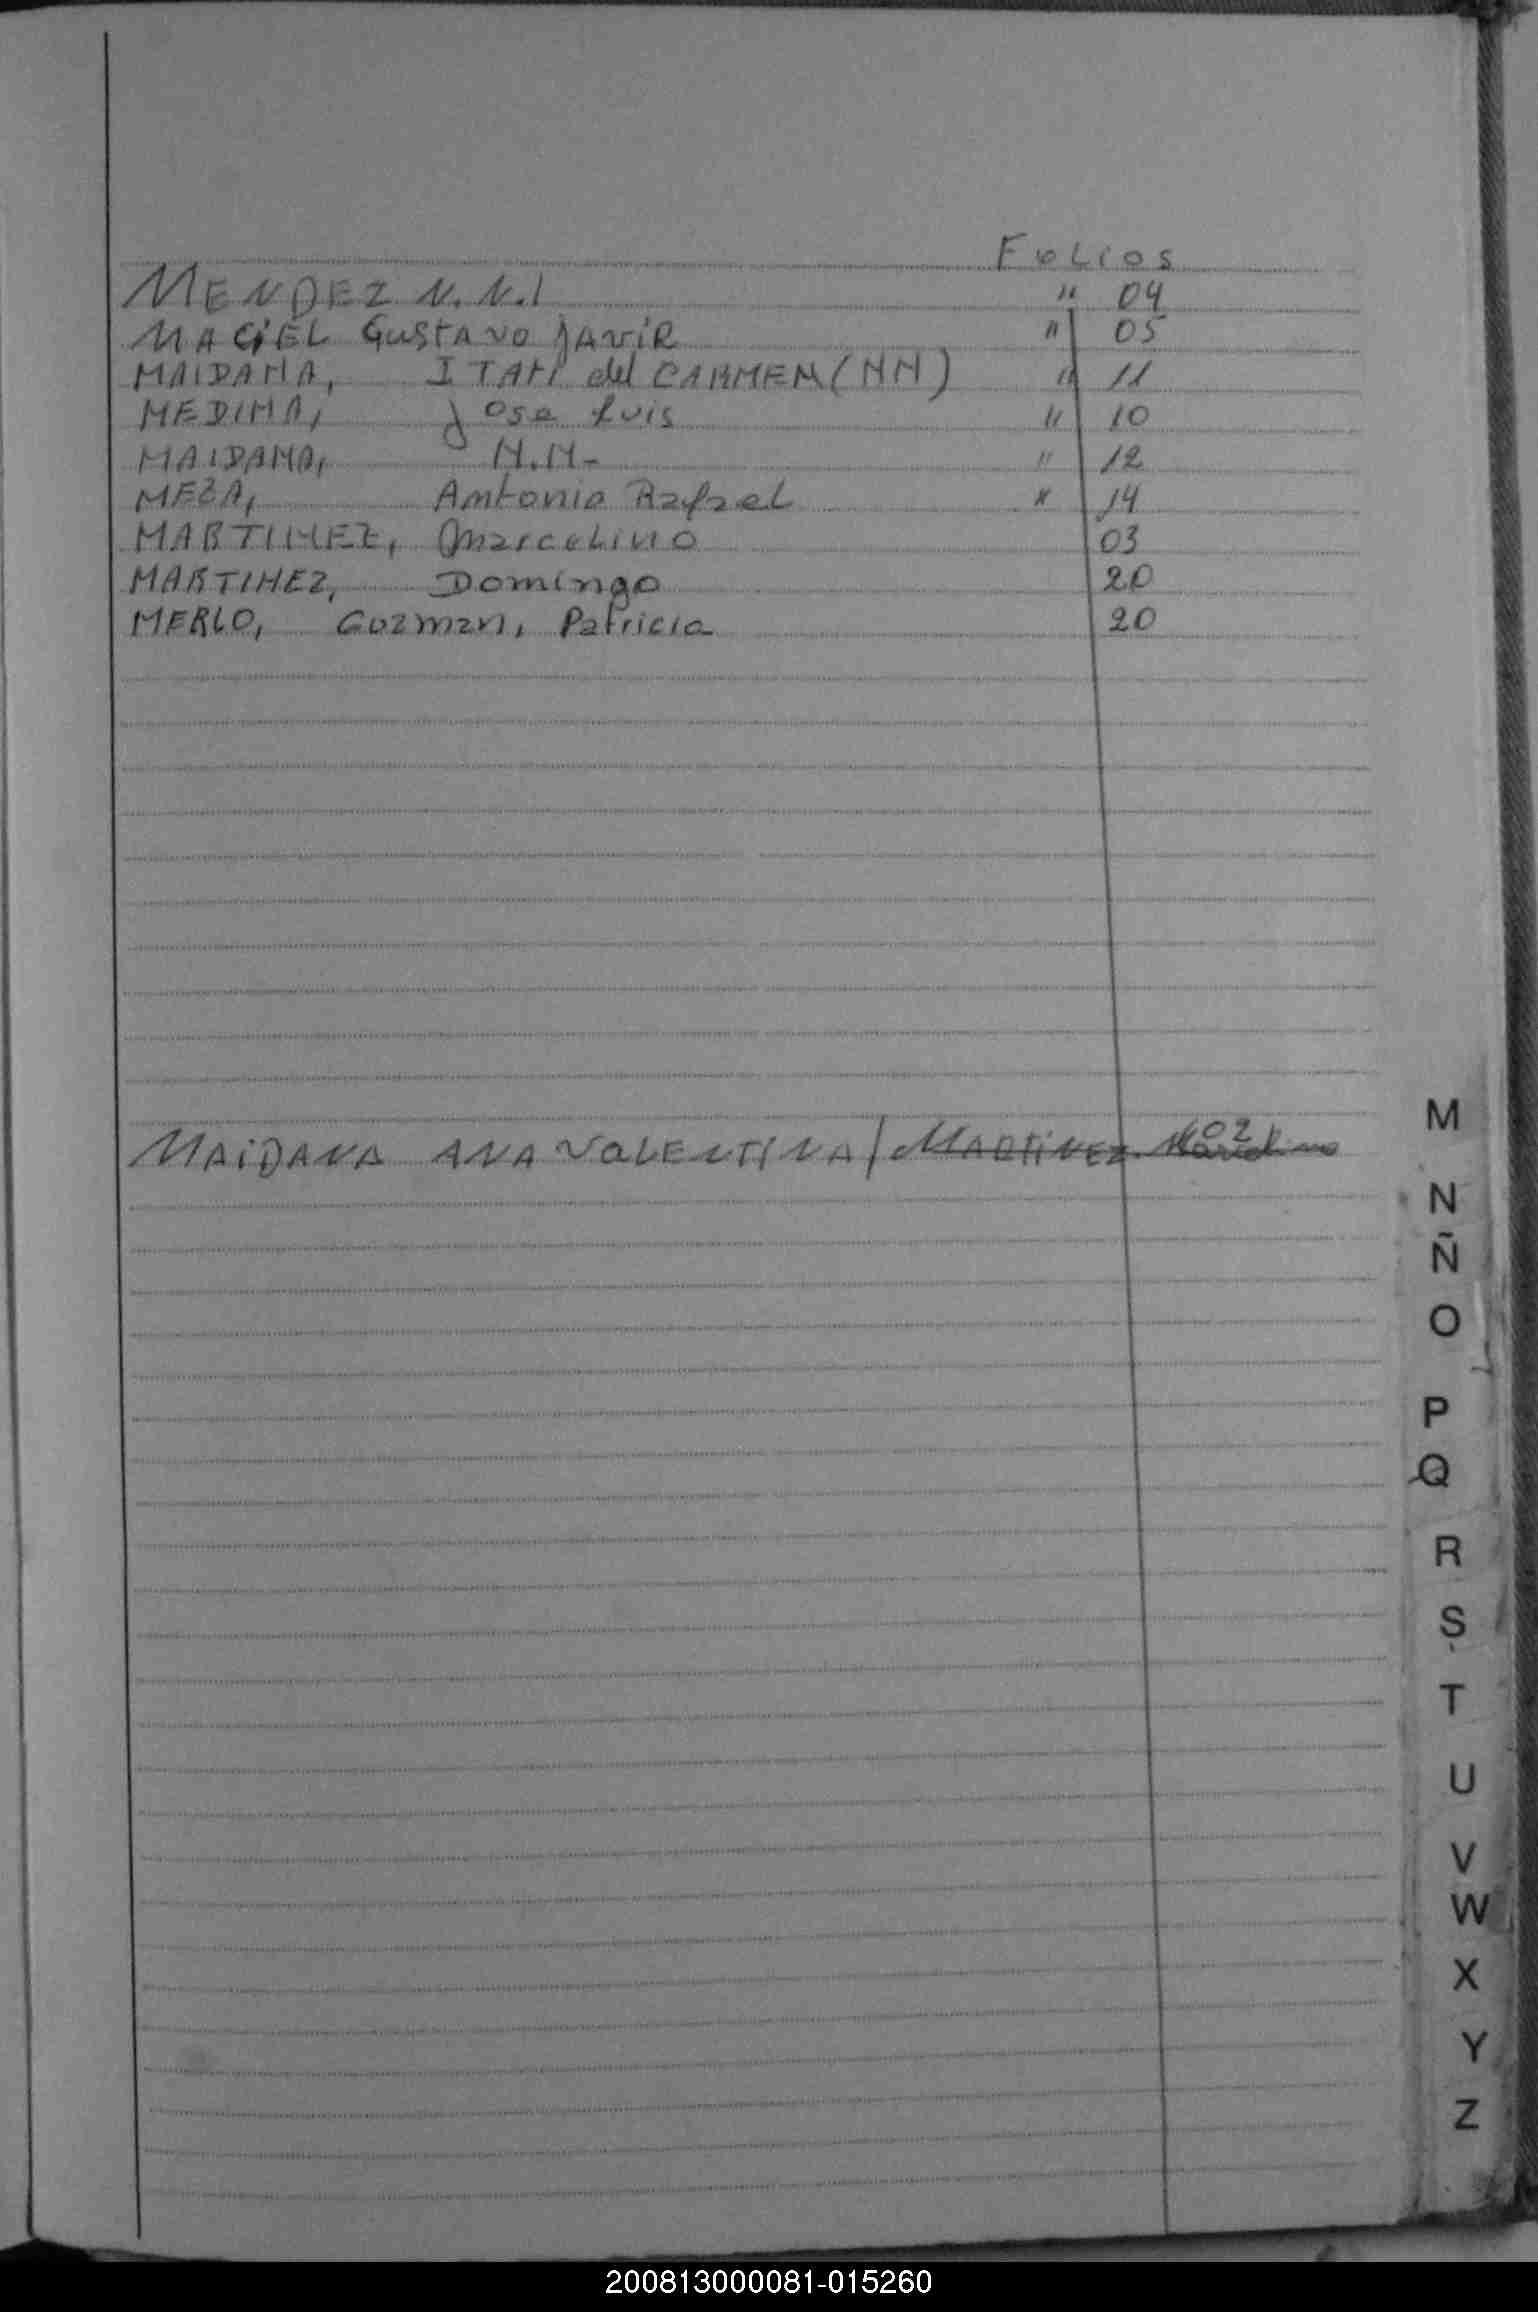 FOLIOS
MENDEZ N.N.1 " 04
MACIEL Gustavo JAVIR " 05
MAIDANA, ITATI del CARMEN (NN) " 11
MEDINA, Jose Luis " 10
MAIDANA, N.N- " 12
MEZA, Antonio Rafael " 14
MARTINEZ, Marcelino 03
MARTINEZ, Domingo 20
MERLO, Guzman, Patricia 20
MAIDANA ANA VALENTINA / MARTINEZ Marcelino 02
M
N
Ñ
O
P
Q
R
S
T
U
V
W
X
Y
Z
200813000081-015260